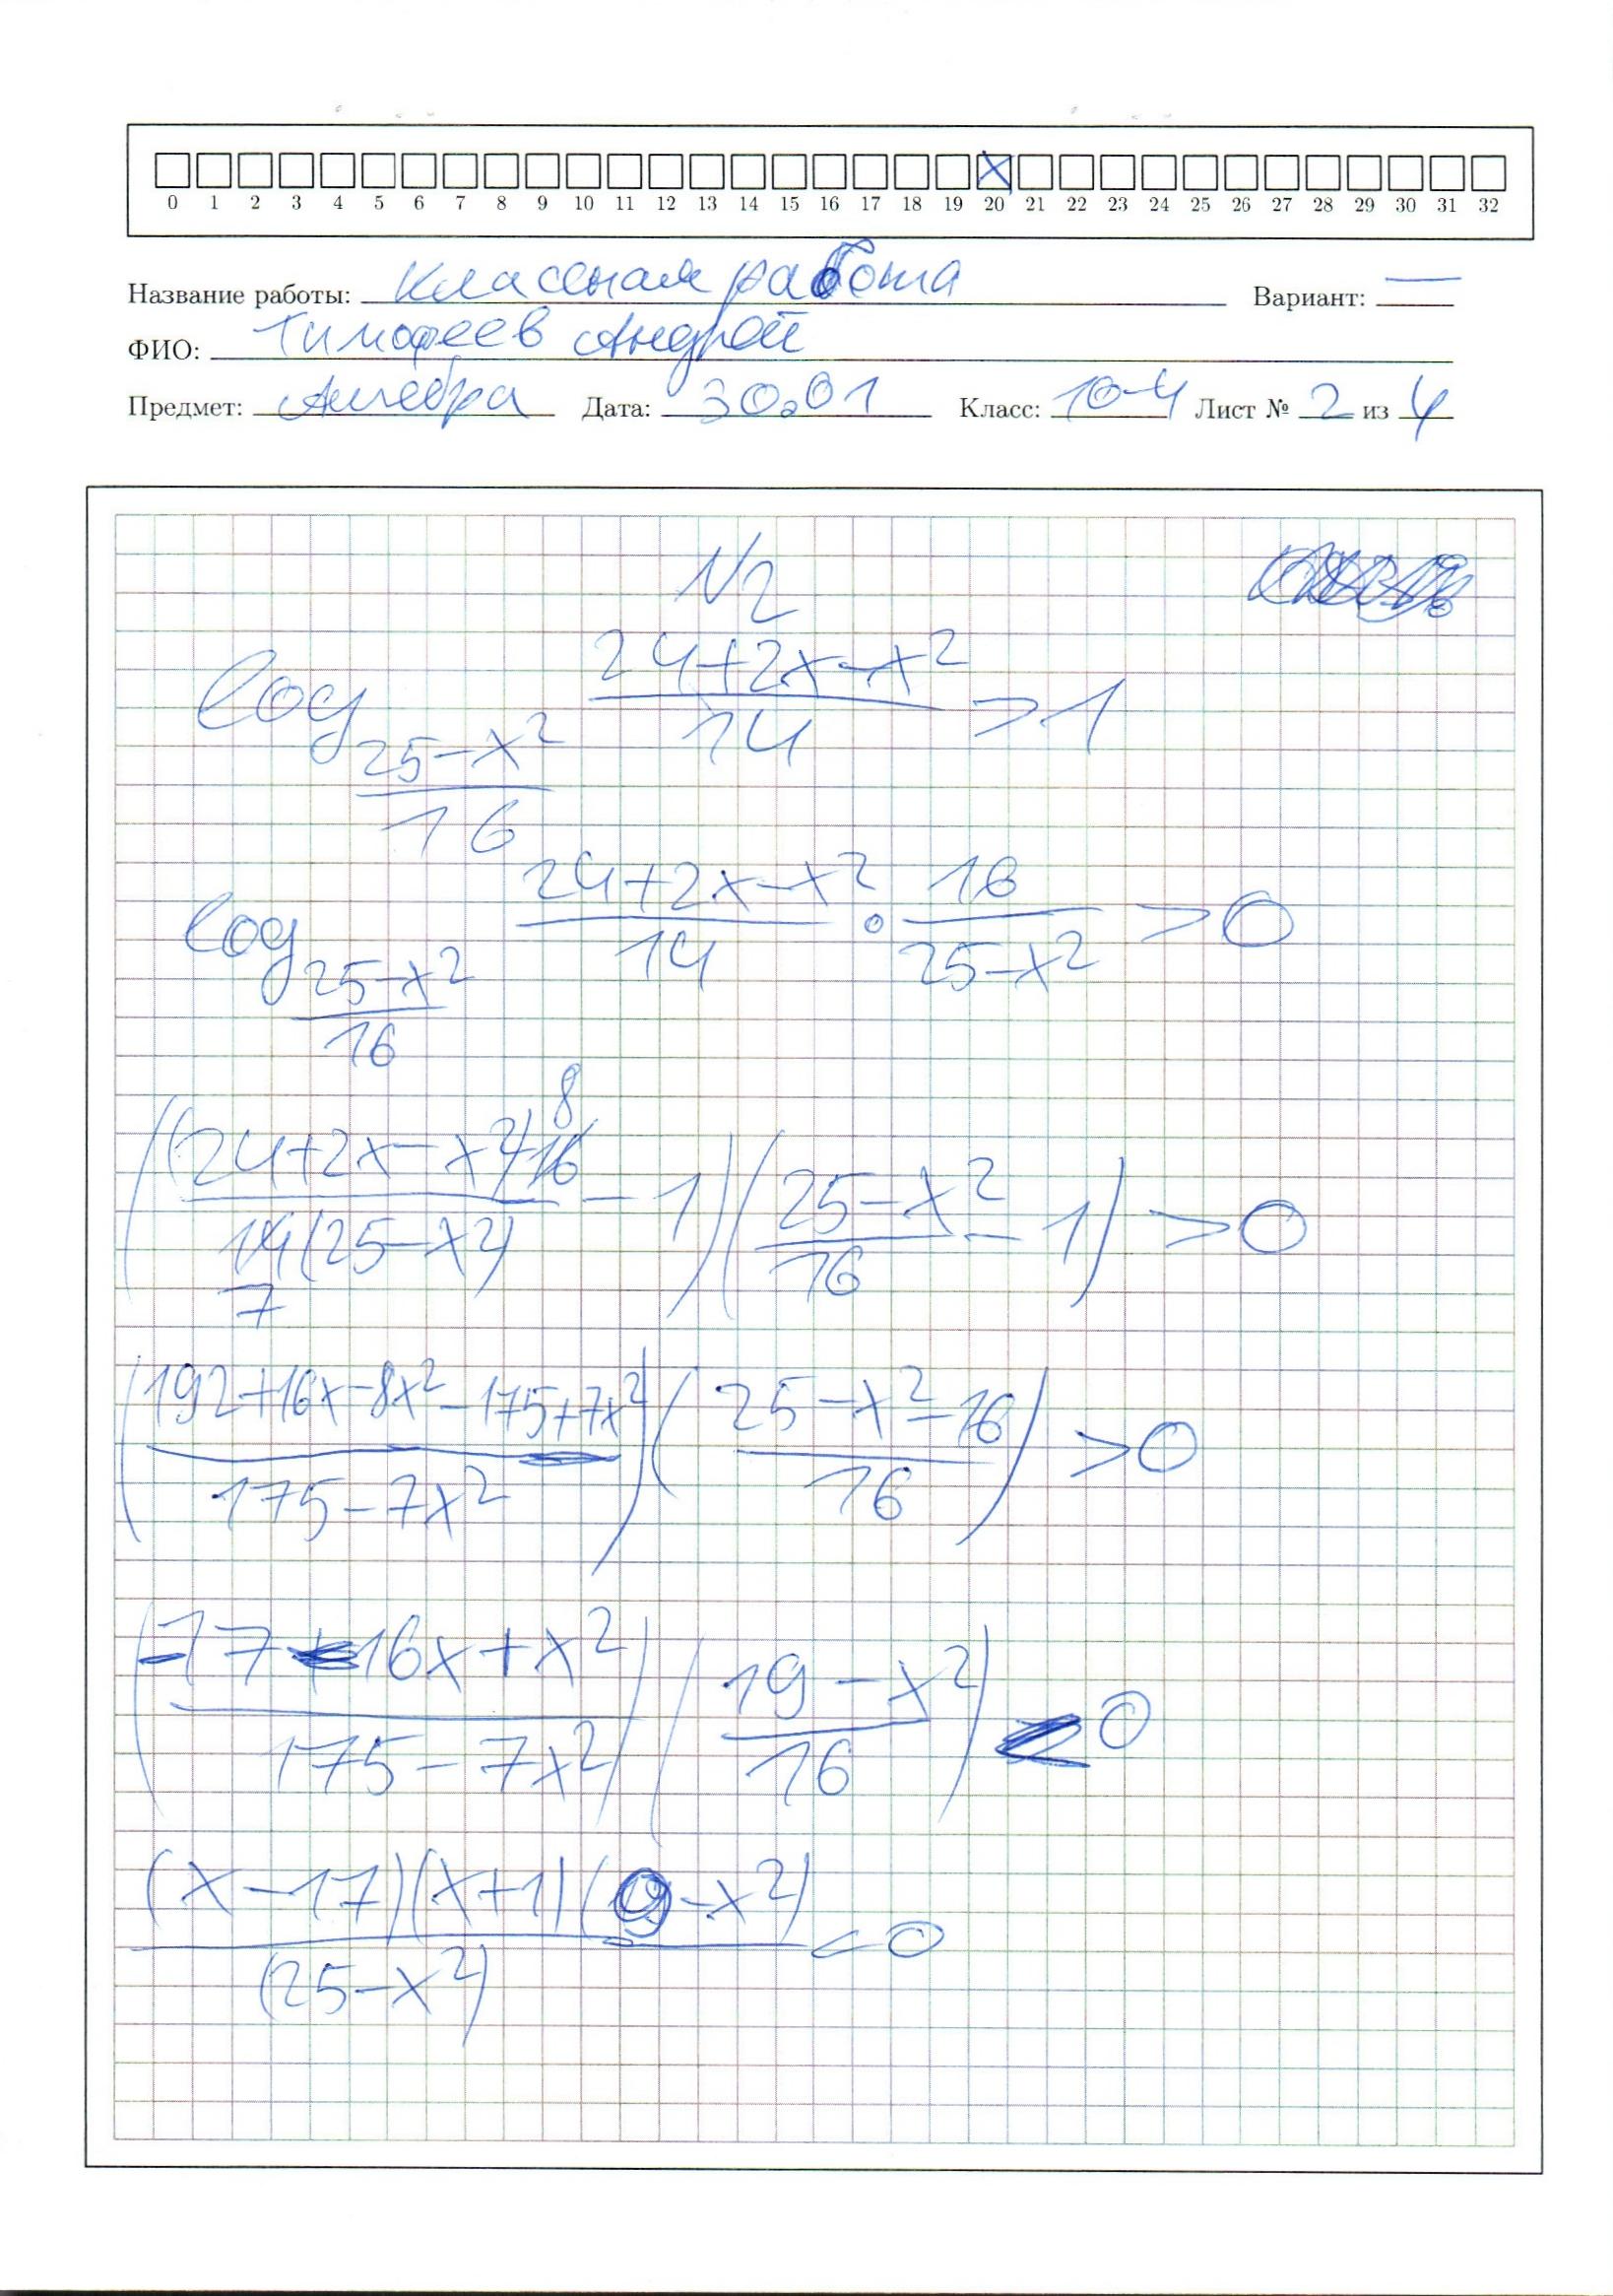 0 1 2 3 4 5 6 7 8 9 10 11 12 13 14 15 16 17 18 19 20 21 22 23 24 25 26 27 28 29 30 31 32
Название работы: Классная работа Вариант: —
ФИО: Тимофеев Андрей
Предмет: Алгебра Дата: 30.01 Класс: 10-4 Лист № 2 из 4
N2
log_{\frac{25-x^2}{16}} \frac{24+2x-x^2}{14} > 1
log_{\frac{25-x^2}{16}} \frac{24+2x-x^2}{14} \cdot \frac{16}{25-x^2} > 0
\left(\frac{(24+2x-x^2) \cdot 16^8}{14_7(25-x^2)} - 1\right)\left(\frac{25-x^2}{16} - 1\right) > 0
\left(\frac{192+16x-8x^2-175+7x^2}{175-7x^2}\right)\left(\frac{25-x^2-16}{16}\right) > 0
\left(\frac{-17-16x+x^2}{175-7x^2}\right)\left(\frac{19-x^2}{16}\right) < 0
\frac{(x-17)(x+1)(9-x^2)}{(25-x^2)} < 0